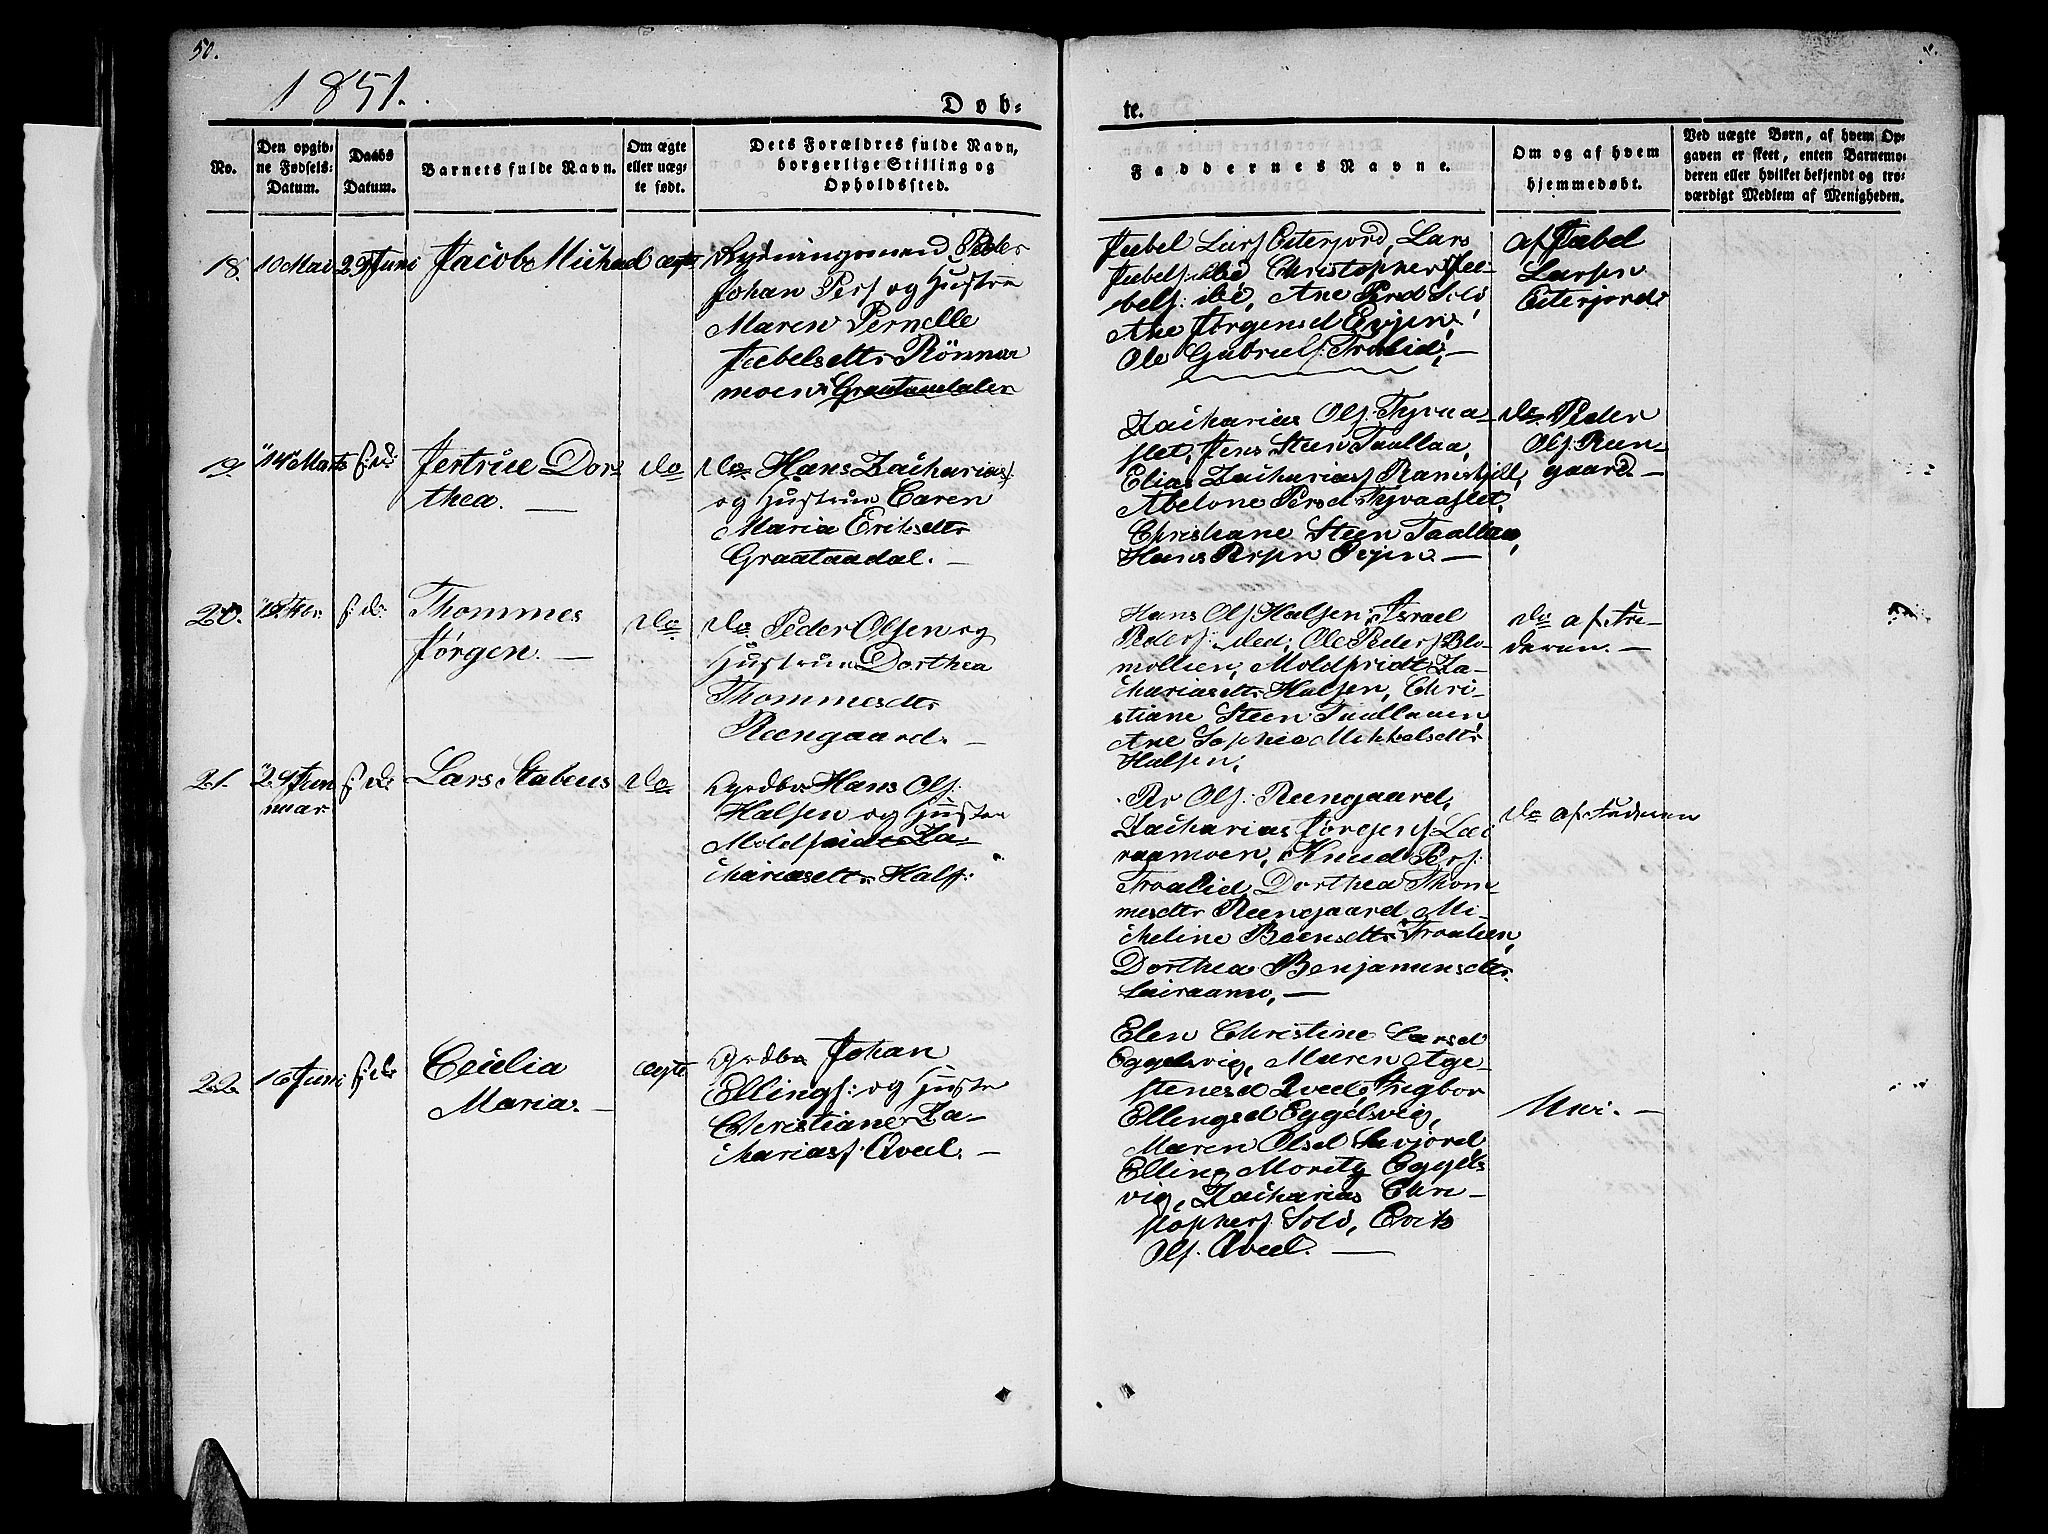 50.
1851.
Døb-
te.
No.
Den opgiv-
ne Fødsels-
Datum.
Daabs
Datum.
Barnets fulde Navn.
Om ægte
eller uæg-
te født.
Dets Forældres fulde Navn,
borgerlige Stilling og
Opholdssted.
Faddernes Navne.
Om og af hvem
hjemmedøbt.
Ved uægte Børn, af hvem Op-
gaven er skeet, enten Barnemo-
deren eller hvilket bekjendt og tro-
værdigt Medlem af Menigheden.
18. 10 Mai 29 Juni Jacob Michael ægte Rydningsmand Peder
Johan Pers og Hustru
Maren Pernelle
Jebelsdtr Rönnor
moen i Graataadalen
Jebel Lars Eiterjord, Lars
Jebels ibid Christopher Je-
bels: ibd, Ane Persd Solö,
Ane Jörgensd Evjen,
Ole Gabriels: Troelid, —
af Jebel
Larsen
Eiterjord.
19 14 Marts s: d: Jertrue Dor-
thea. — do do Hans Zacharias
og Hustrue Caren
Maria Eriksdtr
Graataadal. —
Zacharias Ols. Tyvaa-
slet, Jens Steen Taallaa,
Elias Zacharias Ramskjell,
Abelone Persd Tyvaaslet,
Christiane Steen Taallaa,
Hans Persen Evjen —
do Peder
Ols. Reen-
gaard. —
20. s: d: Thommes
Jørgen. — do do Peder Olsen og
Hustrue Dorthea
Thommesdtr
Reengaard. —
Hans Ols Halsen, Israel
Peders: ibd; Ole Peders Blo-
mollien, Moldfridt Za-
chariasdtr Halsen, Chri-
stiane Steen Taallauen,
Ane Sophia Mikkelsdtr
Halsen,
do af Fa-
deren. —
21. 29 Jan
nuar s: d: Lars Stabeus do Grdbr Hans Ols:
Halsen og Hustru
Moldfride Za-
chariasdtr Hals:
Per Ols: Reengaard,
Zacharias Jörgens Lai
raamoen, Knud Pers:
Troalid, Dorthea Thom
mesdtr Reengaard, Mi-
cheline Beensdtr Troalien,
Dorthea Benjaminsdtr
Lairaamo, —
do af Faderen
22. 16 Juni s: d: Cecilia
Maria. — ægte Grdbr Johan
Ellings: og Hustru
Christiane Za-
charias: Qveel. —
Elen Christine Larsd
Eggelsvig, Maren Age-
stenesd Qveel, Ingbor
Ellingsd Eggelsvig,
Maren Olsd
Elling Moritz Eggels
vig, Zacharias Chri-
stophers: Solö, Erik
Ols. Qveel. —
Nei. —